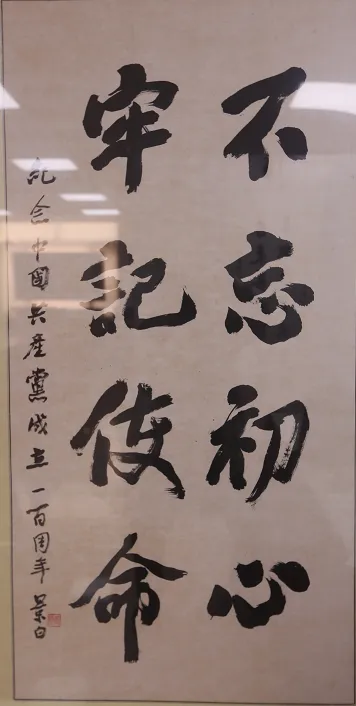 不忘初心
牢記使命
紀念中國共產黨成立一百周年 景白